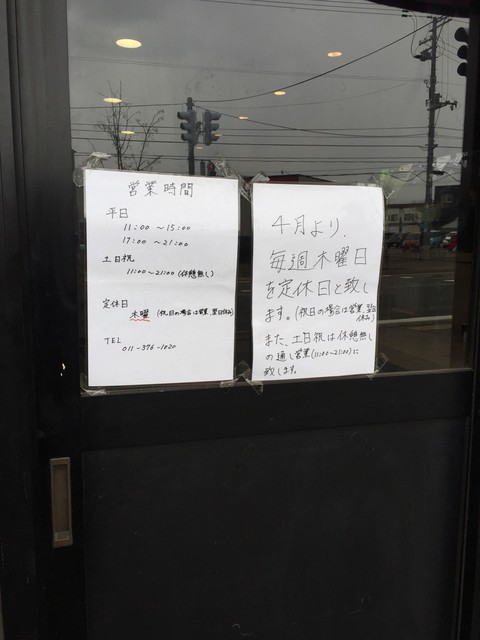 営業時間
平日
11:00 ～ 15:00
17:00 ～ 21:00
土日祝
11:00 ～ 21:00 (休憩無し)
定休日
木曜 (祝日の場合は営業、翌日休み)
TEL
011-376-1020
4月より、
毎週木曜日
を定休日と致し
ます。(祝日の場合は営業、翌日
休み)
また、土日祝は休憩無し
の通し営業(11:00～21:00)に
致します。